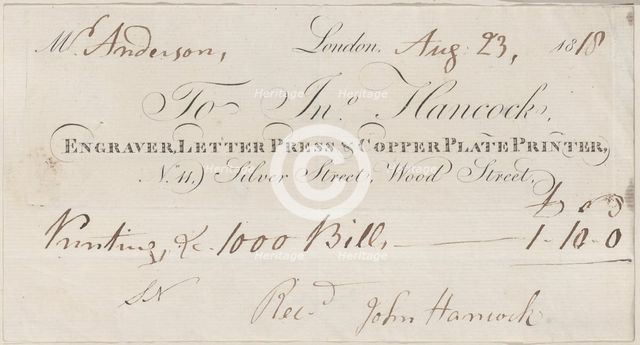 Mr Anderson, London. Aug 23, 1818
To Jno. Hancock,
ENGRAVER, LETTER PRESS & COPPER PLATE PRINTER,
N. 11, Silver Street, Wood Street,
£ s d
Printing, &c. 1000 Bills 1 - 10 - 0
Recd John Hancock
Heritage
Heritage
Heritage
Heritage
Heritage
Heritage